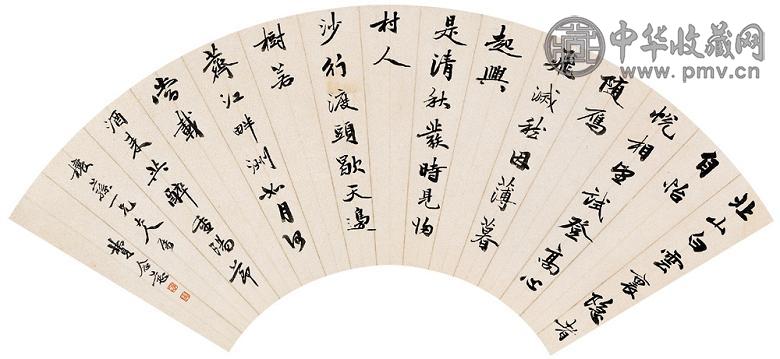 北山白雲裏隐者
自怡
悅相望試登高心
隨鴈
飛滅愁因薄暮
起興
是清秋發時見歸
村人
沙行渡頭歇天邊
樹若
薺江畔洲如月何
當載
酒来共醉重陽節
一兄大人屬
費念慈
中华收藏网
www.pmv.cn